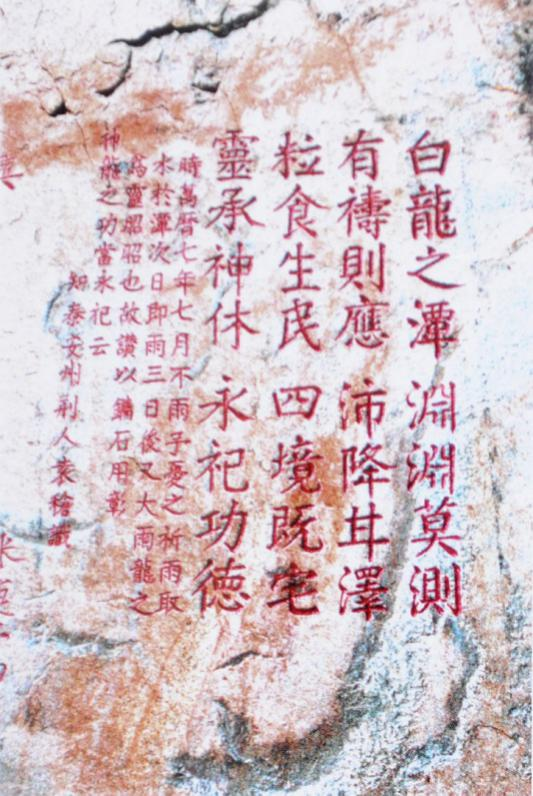 白龍之潭 淵淵莫測
有禱則應 沛降甘澤
粒食生民 四境既宅
靈承神休 永祀功德
時萬曆七年七月不雨予憂之祈雨取
水於潭次日即雨三日後又大雨龍之
為靈昭昭也故讚以鐫石用彰
神龍之功當永祀云
知泰安州荊人袁識